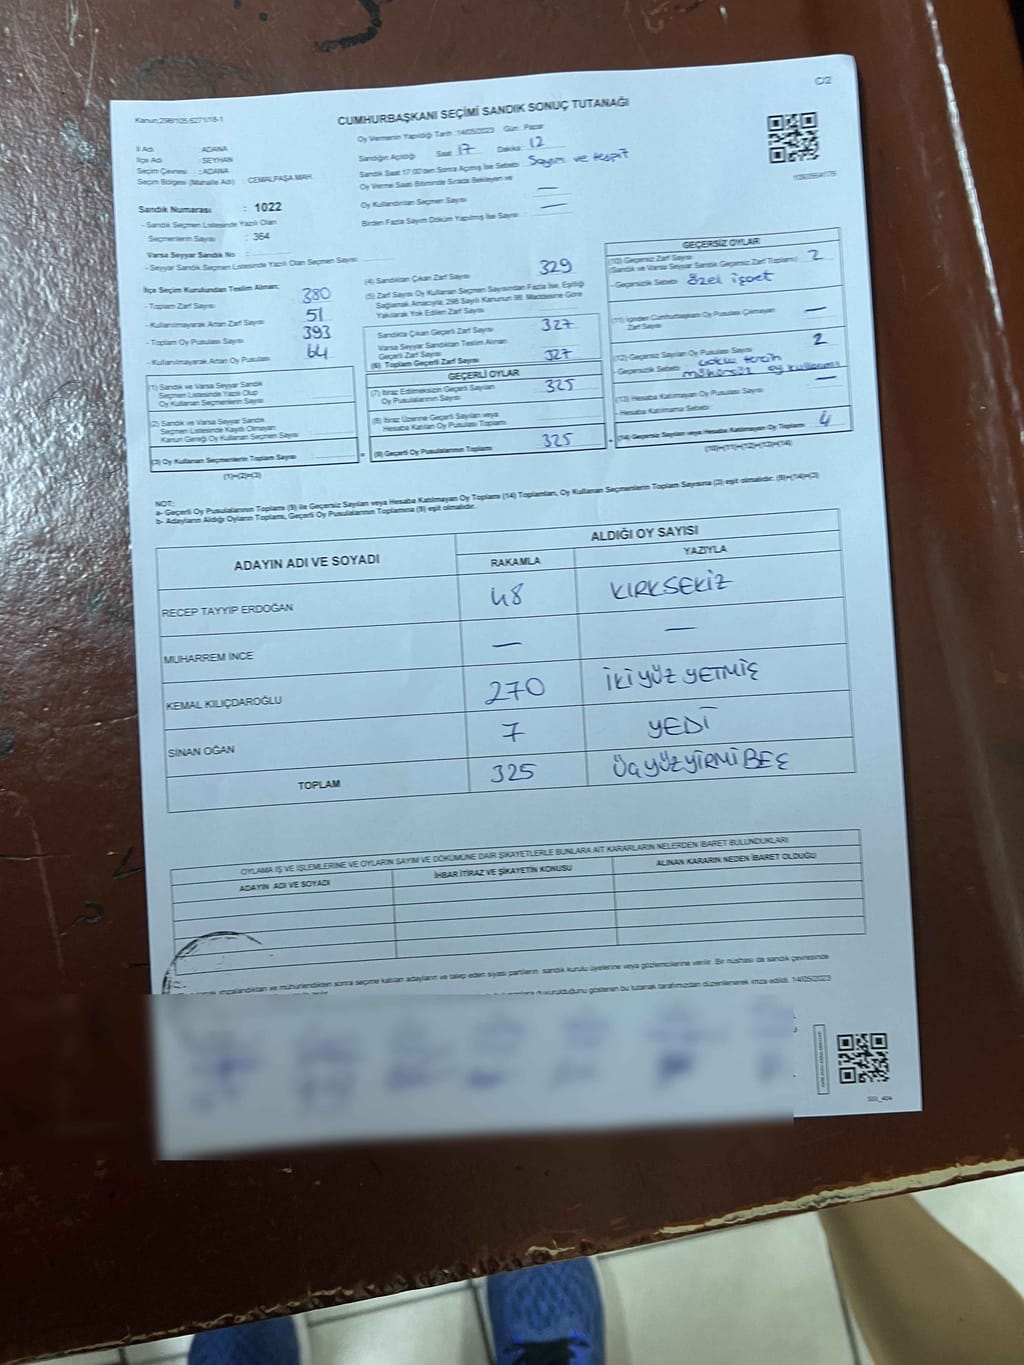 C/2
Kanun:298/105-6271/18-1
CUMHURBAŞKANI SEÇİMİ SANDIK SONUÇ TUTANAĞI
Oy Vermenin Yapıldığı Tarih : 14/05/2023 Gün : Pazar
İl Adı : ADANA
İlçe Adı : SEYHAN
Seçim Çevresi : ADANA
Seçim Bölgesi (Mahalle Adı) CEMALPAŞA MAH.
Sandığın Açıldığı Saat 17 Dakika 12
Sandık Saat 17:00'den Sonra Açılmış İse Sebebi Sayım ve tespit
Oy Verme Saati Bitiminde Sırada Bekleyen ve
Oy Kullandırılan Seçmen Sayısı —
Birden Fazla Sayım Döküm Yapılmış İse Sayısı —
Sandık Numarası : 1022
- Sandık Seçmen Listesinde Yazılı Olan
Seçmenlerin Sayısı : 364
Varsa Seyyar Sandık No :
- Seyyar Sandık Seçmen Listesinde Yazılı Olan Seçmen Sayısı
İlçe Seçim Kurulundan Teslim Alınan:
- Toplam Zarf Sayısı 380
- Kullanılmayarak Artan Zarf Sayısı 51
- Toplam Oy Pusulası Sayısı 393
- Kullanılmayarak Artan Oy Pusulası 64
(1) Sandık ve Varsa Seyyar Sandık
Seçmen Listesinde Yazılı Olup
Oy Kullanan Seçmenlerin Sayısı
(2) Sandık ve Varsa Seyyar Sandık
Seçmen Listesinde Kayıtlı Olmayan
Kanun Gereği Oy Kullanan Seçmen Sayısı
(3) Oy Kullanan Seçmenlerin Toplam Sayısı
(1)+(2)=(3)
(4) Sandıktan Çıkan Zarf Sayısı 329
(5) Zarf Sayısı Oy Kullanan Seçmen Sayısından Fazla İse, Eşitliği
Sağlamak Amacıyla; 298 Sayılı Kanunun 98. Maddesine Göre
Yakılarak Yok Edilen Zarf Sayısı
Sandıkta Çıkan Geçerli Zarf Sayısı 327
Varsa Seyyar Sandıktan Teslim Alınan
Geçerli Zarf Sayısı
(6) Toplam Geçerli Zarf Sayısı 327
GEÇERLİ OYLAR
(7) İtiraz Edilmeksizin Geçerli Sayılan
Oy Pusulalarının Sayısı 325
(8) İtiraz Üzerine Geçerli Sayılan veya
Hesaba Katılan Oy Pusulası Toplamı
(9) Geçerli Oy Pusulalarının Toplamı 325
GEÇERSİZ OYLAR
(10) Geçersiz Zarf Sayısı
(Sandık ve Varsa Seyyar Sandık Geçersiz Zarf Toplamı) 2
- Geçersizlik Sebebi özel işaret
(11) İçinden Cumhurbaşkanı Oy Pusulası Çıkmayan
Zarf Sayısı —
(12) Geçersiz Sayılan Oy Pusulası Sayısı 2
- Geçersizlik Sebebi çoklu tercih
mühürsüz oy kullanımı
(13) Hesaba Katılmayan Oy Pusulası Sayısı —
- Hesaba Katılmama Sebebi
(14) Geçersiz Sayılan veya Hesaba Katılmayan Oy Toplamı 4
(10)+(11)+(12)+(13)=(14)
NOT:
a- Geçerli Oy Pusulalarının Toplamı (9) ile Geçersiz Sayılan veya Hesaba Katılmayan Oy Toplamı (14) Toplamları, Oy Kullanan Seçmenlerin Toplam Sayısına (3) eşit olmalıdır. (9)+(14)=(3)
b- Adayların Aldığı Oyların Toplamı, Geçerli Oy Pusulalarının Toplamına (9) eşit olmalıdır.
ADAYIN ADI VE SOYADI
ALDIĞI OY SAYISI
RAKAMLA YAZIYLA
RECEP TAYYİP ERDOĞAN 48 KIRKSEKİZ
MUHARREM İNCE — —
KEMAL KILIÇDAROĞLU 270 İKİYÜZ YETMİŞ
SİNAN OĞAN 7 YEDİ
TOPLAM 325 ÜÇYÜZYİRMİBEŞ
OYLAMA İŞ VE İŞLEMLERİNE VE OYLARIN SAYIM VE DÖKÜMÜNE DAİR ŞİKAYETLERLE BUNLARA AİT KARARLARIN NELERDEN İBARET BULUNDUKLARI
ADAYIN ADI VE SOYADI İHBAR İTİRAZ VE ŞİKAYETİN KONUSU ALINAN KARARIN NEDEN İBARET OLDUĞU
imzalandıktan ve mühürlendikten sonra seçime katılan adayların ve talep eden siyasi partilerin sandık kurulu üyelerine veya gözlemcilerine verilir. Bir nüshası da sandık çevresinde
duyurulduğunu gösteren bu tutanak tarafımızdan düzenlenerek imza edildi. 14/05/2023